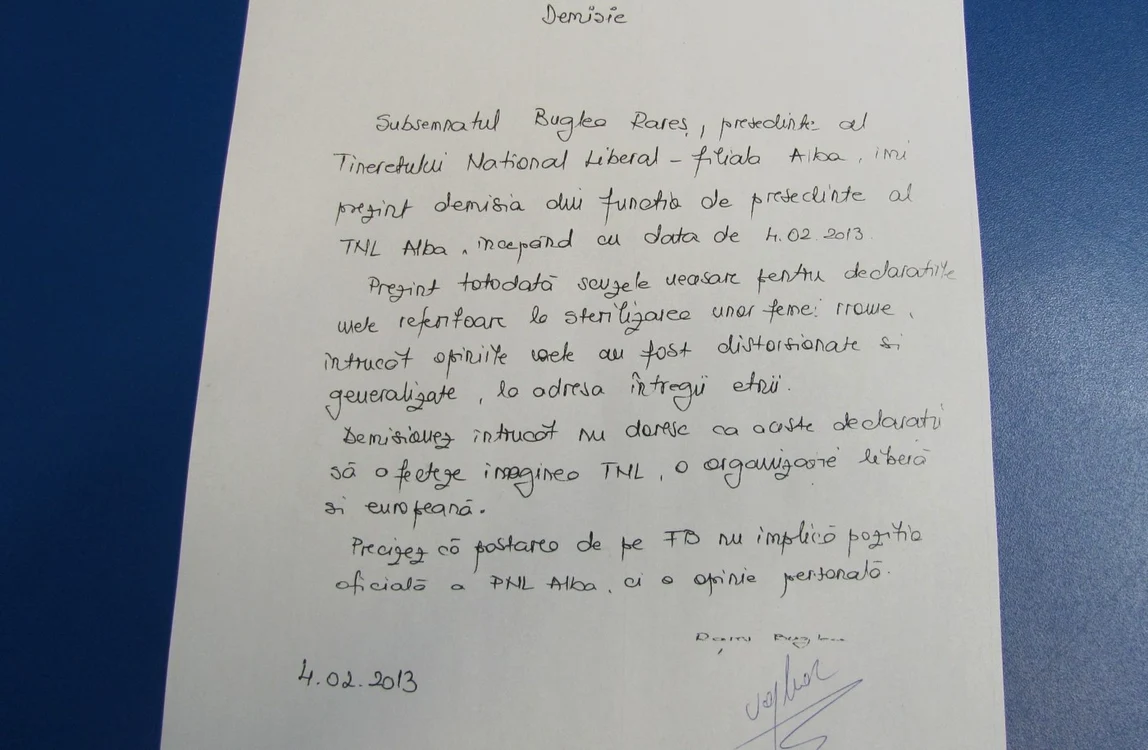 Demisie
Subsemnatul Buglea Rareș, presedinte al
Tineretului National Liberal – filiala Alba, imi
prezint demisia din functia de presedinte al
TNL Alba, începând cu data de 4.02.2013.
Prezint totodată scuzele necesare pentru declaratiile
mele referitoare la sterilizarea unor femei rrome,
întrucât opiniile mele au fost distorsionate si
generalizate, la adresa întregii etnii.
Demisionez întrucât nu doresc ca aceste declaratii
să afecteze imaginea TNL, o organizație liberă
si europeană.
Precizez că postarea de pe FB nu implică poziția
oficială a PNL Alba, ci o opinie personală.
4.02.2013